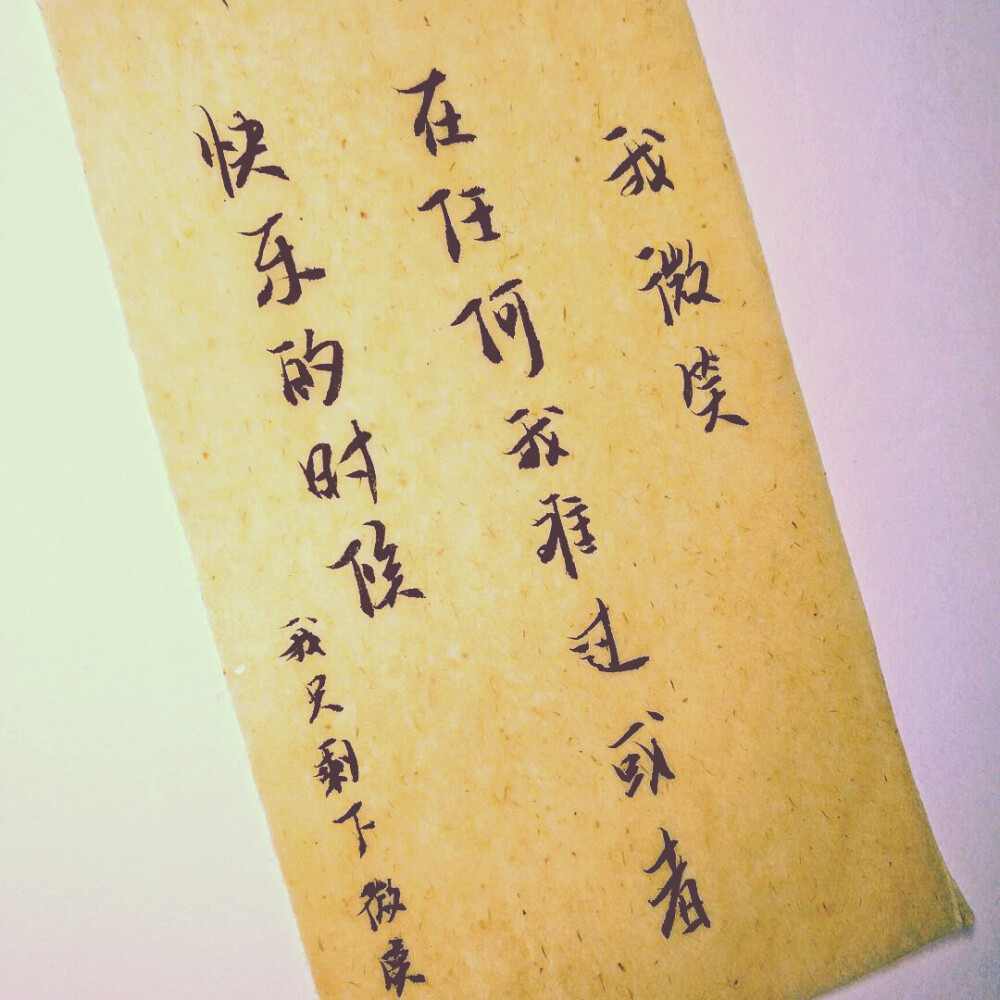 我微笑
在任何我难过或者
快乐的时候
我只剩下微笑